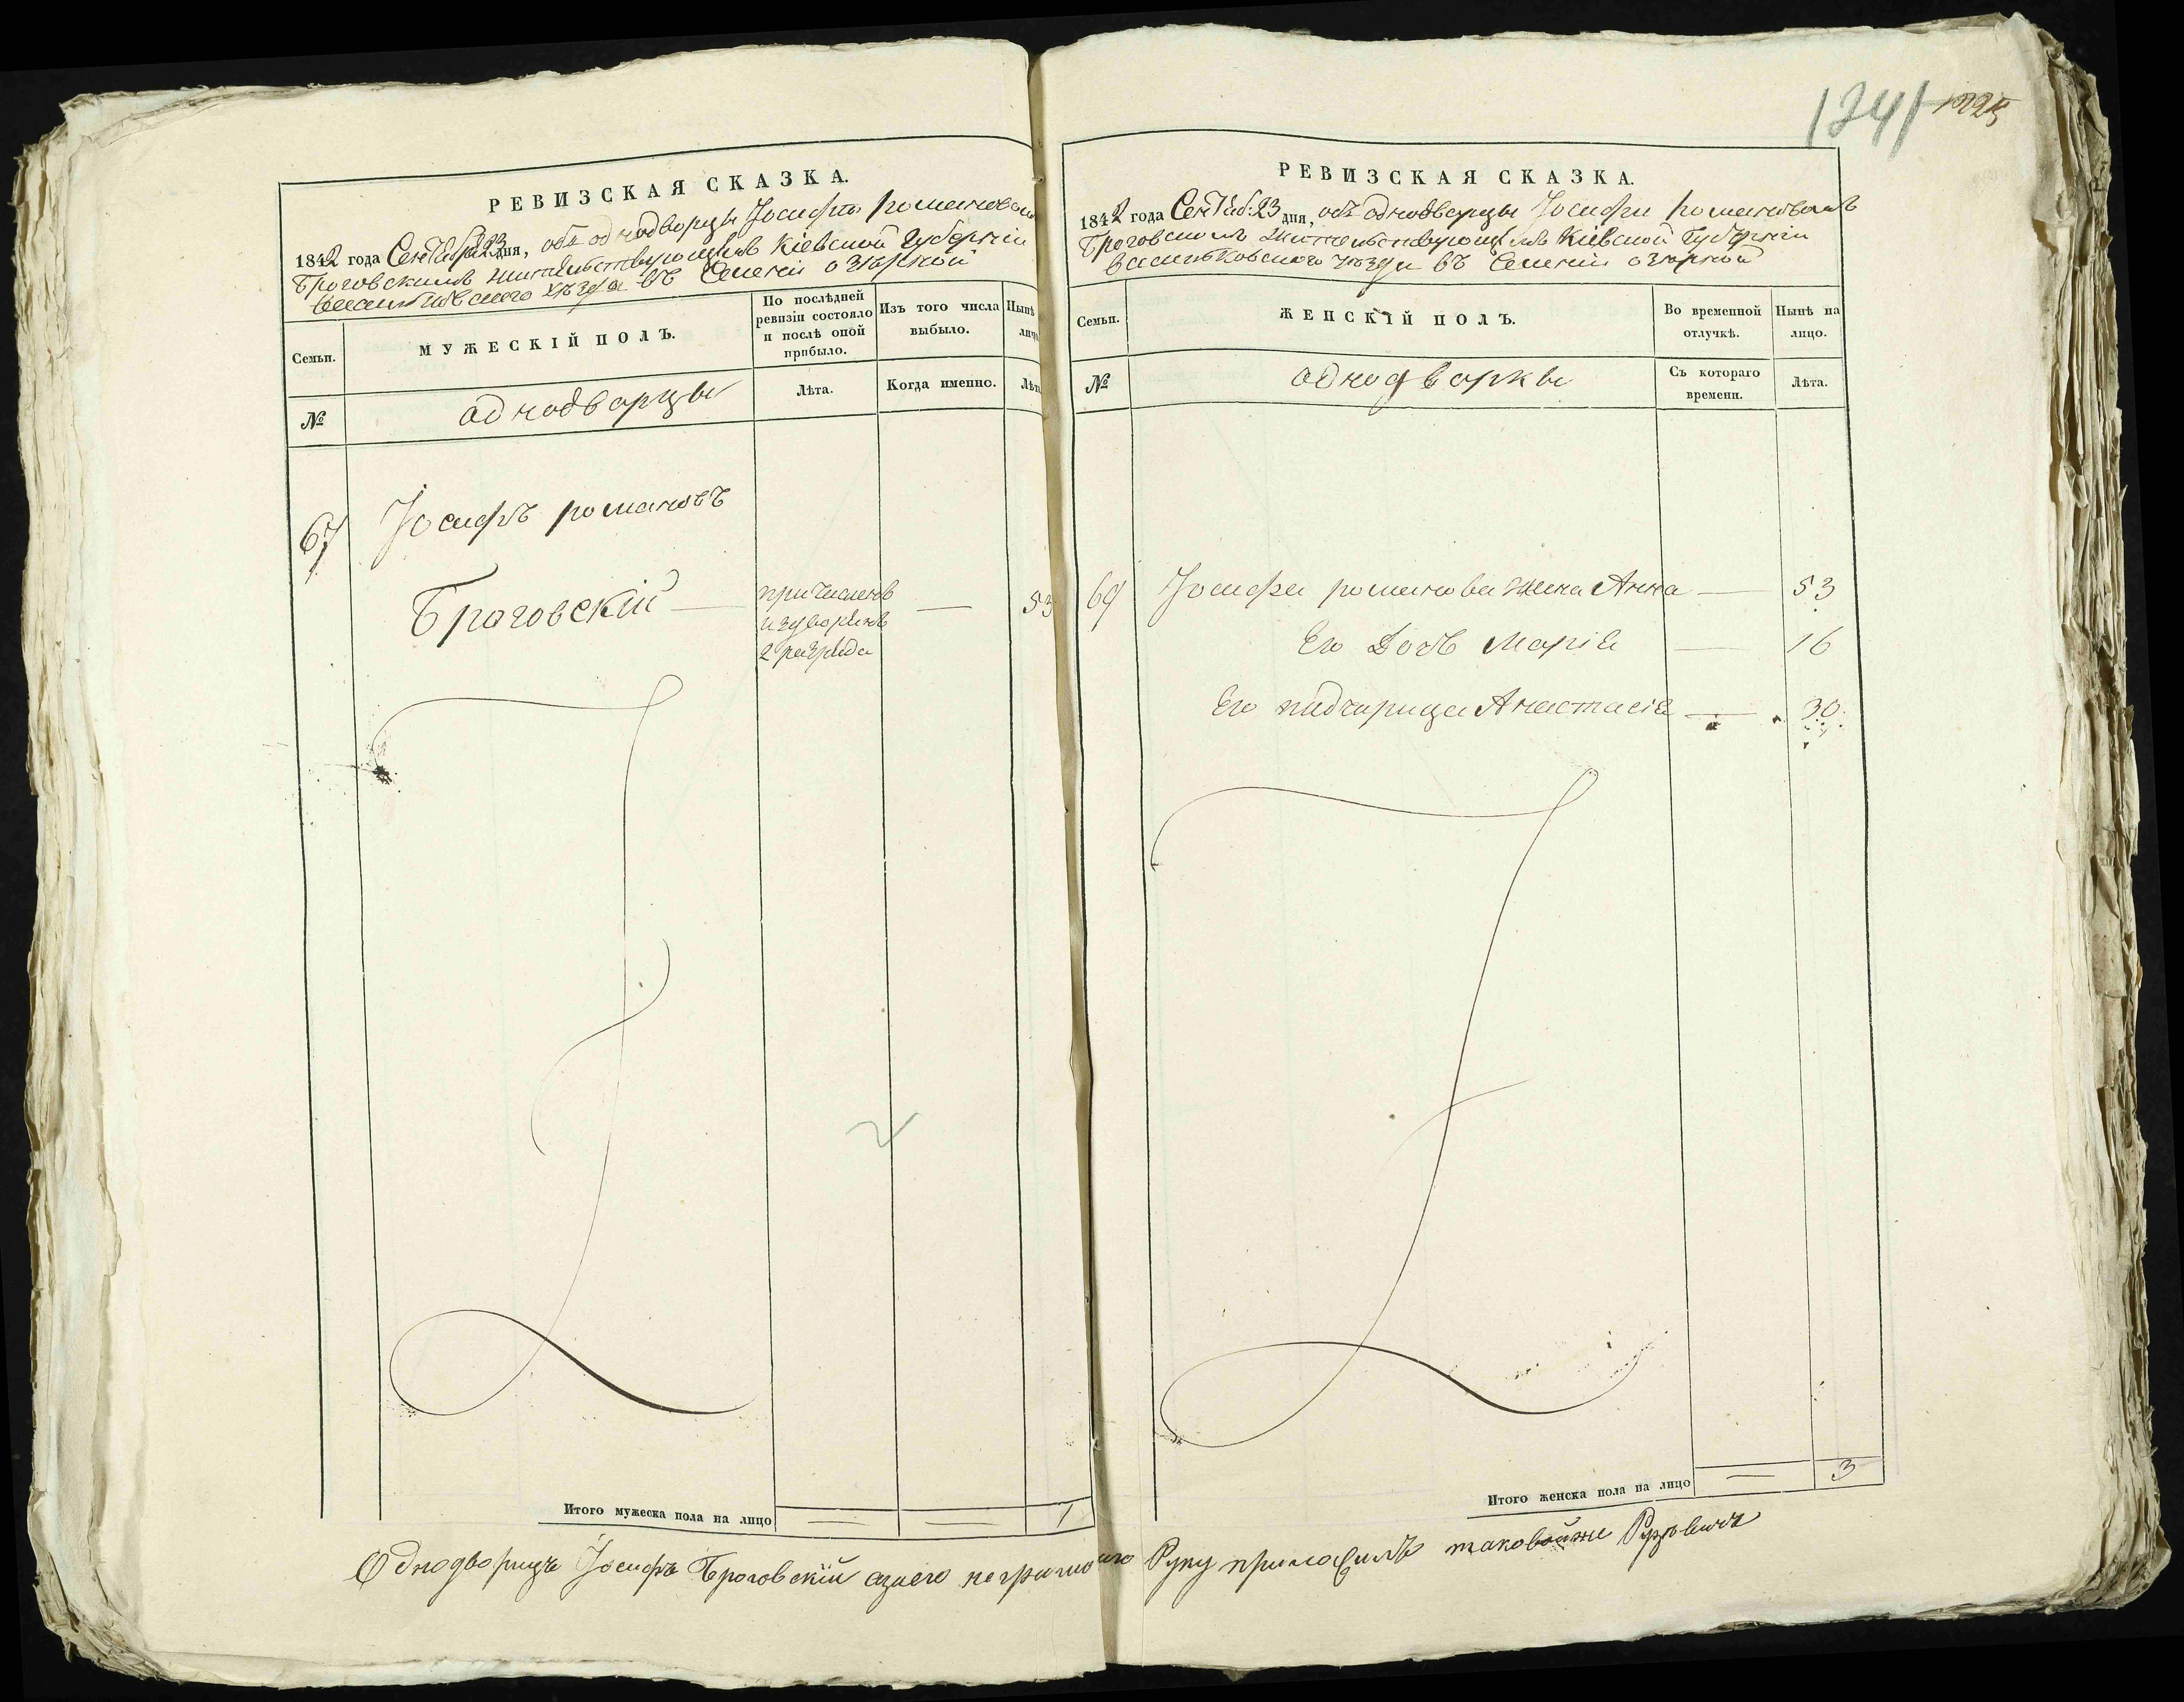 РЕВИЗСКАЯ СКАЗКА.
1842 года Сентября 23 дня, объ однодворцы Іосифъ романовомъ
Броговскимъ жительствующимъ Кіевской Губерніи
Васильковского уѣзда въ Селеніи озіорной
Семьи.
МУЖЕСКІЙ ПОЛЪ.
По послѣдней ревизіи состояло и послѣ оной прибыло.
Изъ того числа выбыло.
Нынѣ лицо
№
однодворцы
Лѣта.
Когда именно.
Лѣта
67
Іосифъ романовъ
Броговскій — причисленъ — 53
изъ дворянъ
2 разряда
2
Итого мужеска пола на лицо — — 1
1341 1225
РЕВИЗСКАЯ СКАЗКА.
1842 года Сентяб: 23 дня, объ однодворцы Іосифи романовомъ
Броговскомъ жительствующимъ Кіевской Губерніи
Васильковского уѣзда въ Селеніи озіорной
Семьи.
ЖЕНСКІЙ ПОЛЪ.
Во временной отлучкѣ.
Нынѣ на лицо.
№
однодворки
Съ котораго времени.
Лѣта.
69 Іосифа романова жена Анна — 53
Его Дочь Марія — 16
Его падчирица Анастасія — 30
Итого женска пола на лицо — 3
Однодворецъ Іосифъ Броговскій азнего неграмотного Руку приложилъ таковойже